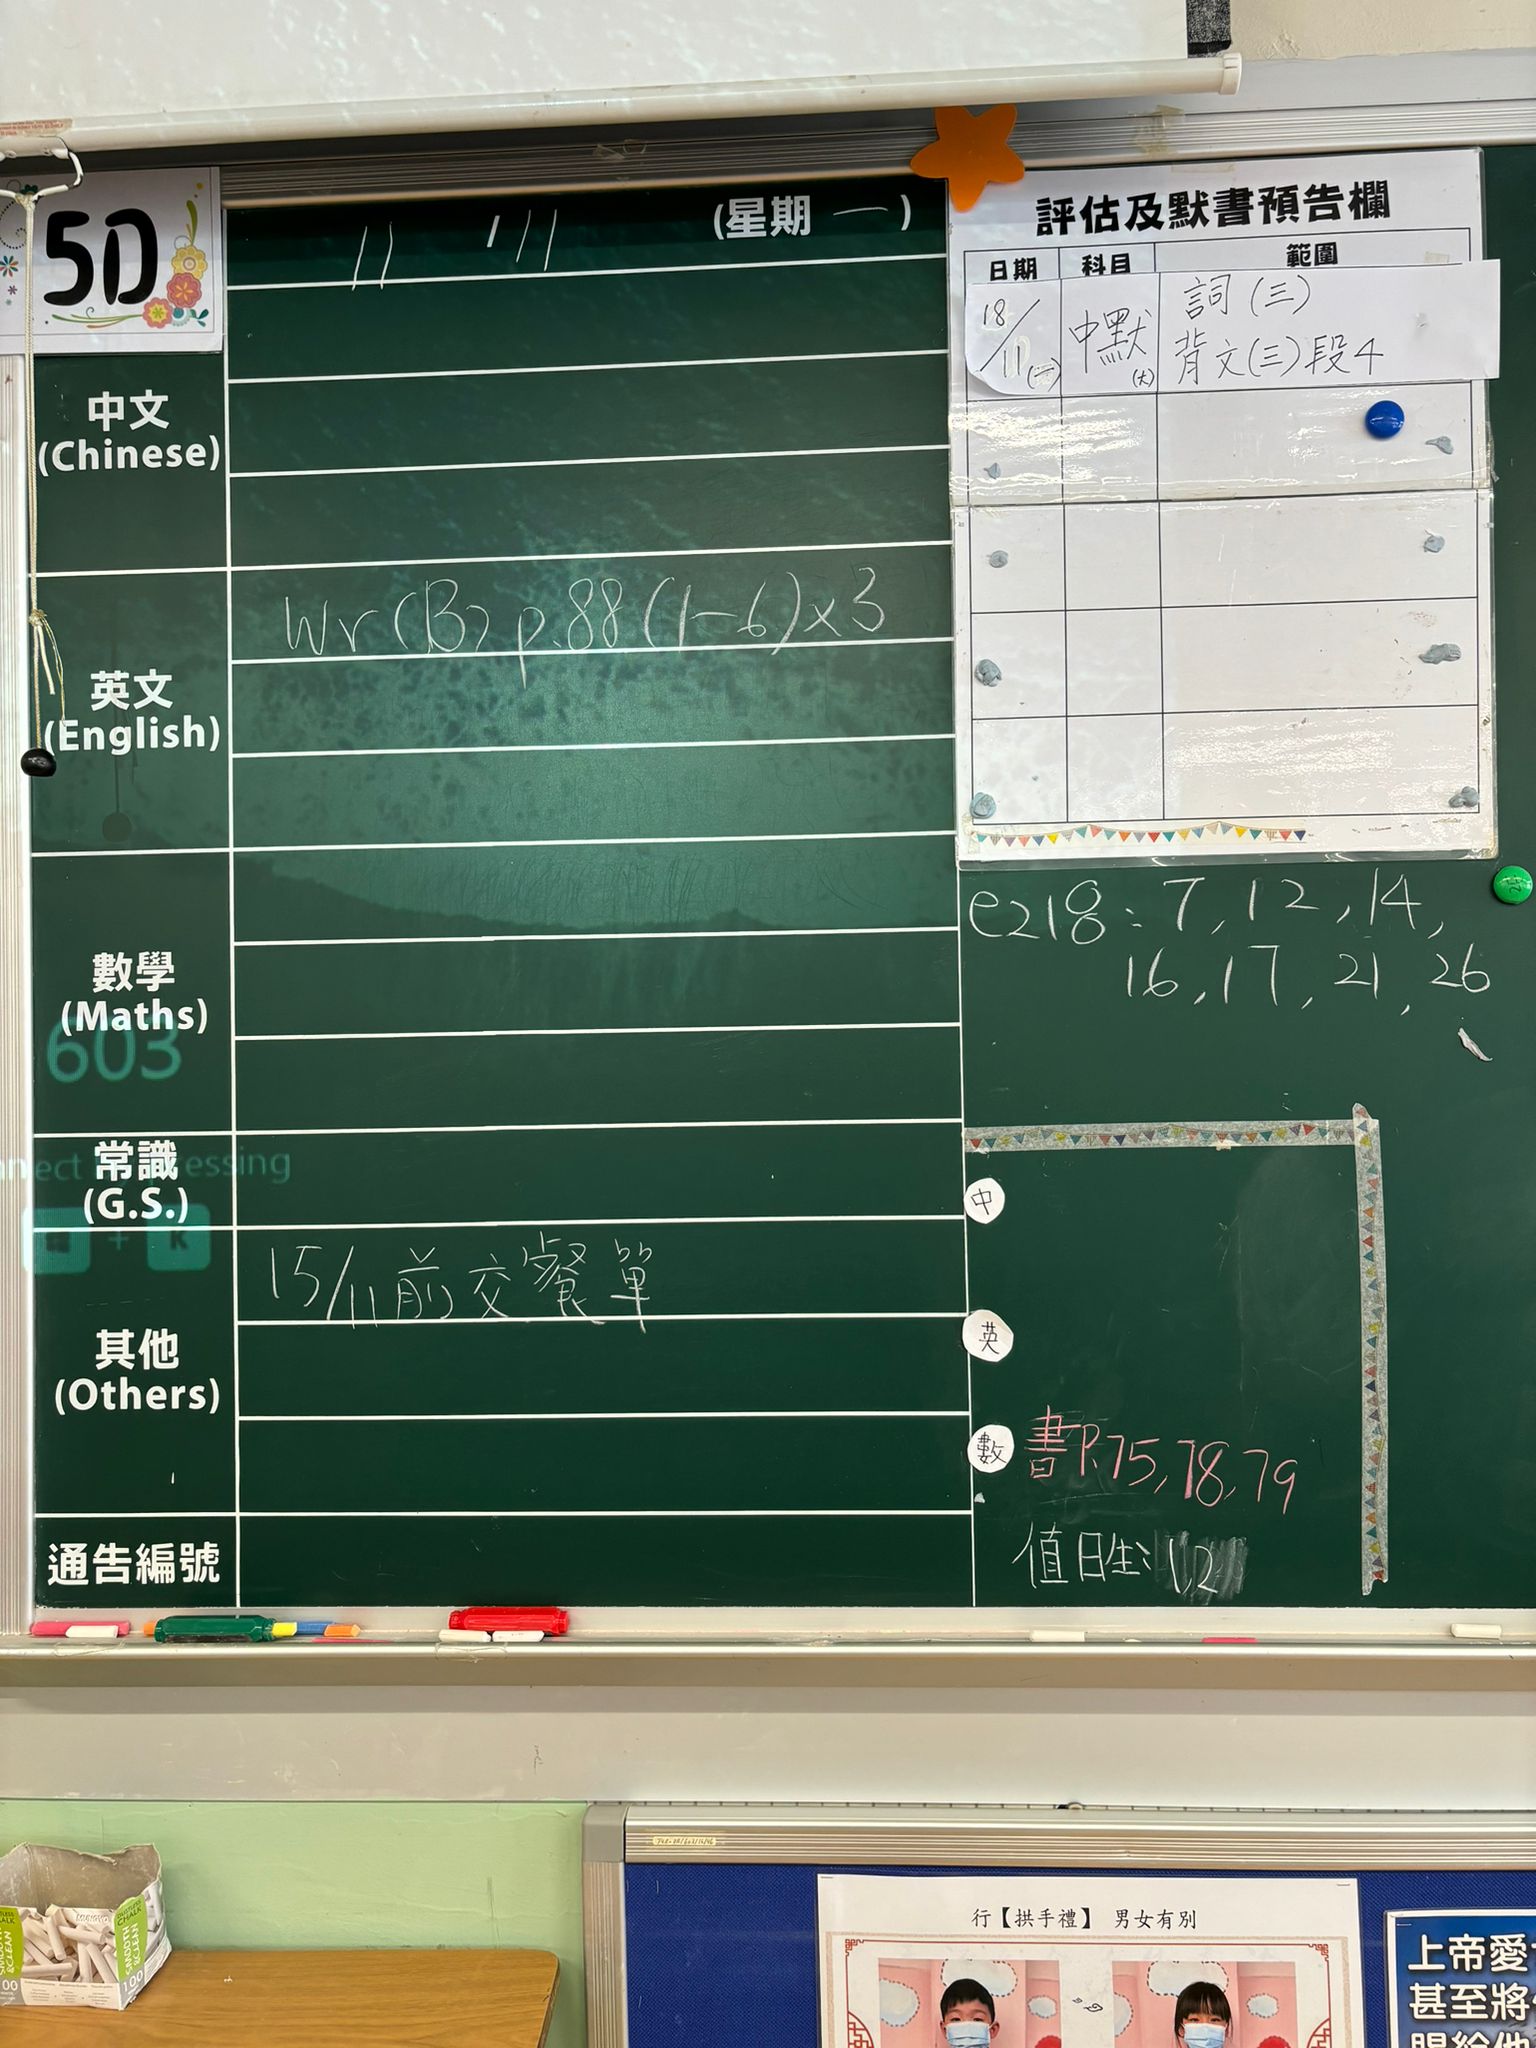 5D
11 / 11 (星期一)
中文
(Chinese)
英文
(English)
Wr(B) p.88(1-6)x3
數學
(Maths)
603
常識
(G.S.)
+ K
其他
(Others)
15/11前交餐單
通告編號
評估及默書預告欄
日期 科目 範圍
18/11(一) 中默(大) 詞(三)
背文(三)段4
e218: 7, 12, 14,
16, 17, 21, 26
中
英
數 書P.75,78,79
值日生: 1,2
行【拱手禮】 男女有別
上帝愛
甚至將
賜給他
MUNGYO
DUSTLESS CHALK
SMOOTH & CLEAN
100